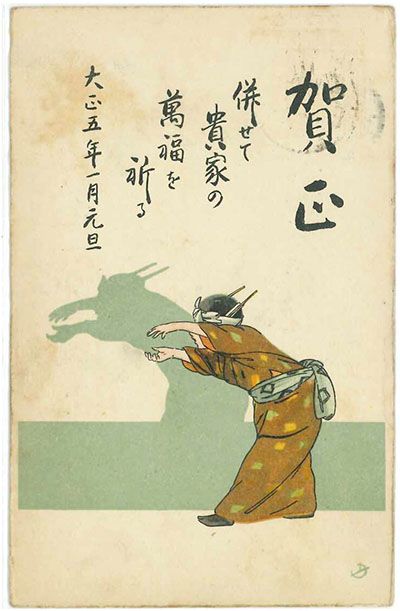 賀正
併せて
貴家の
萬福を
祈る
大正五年一月元旦